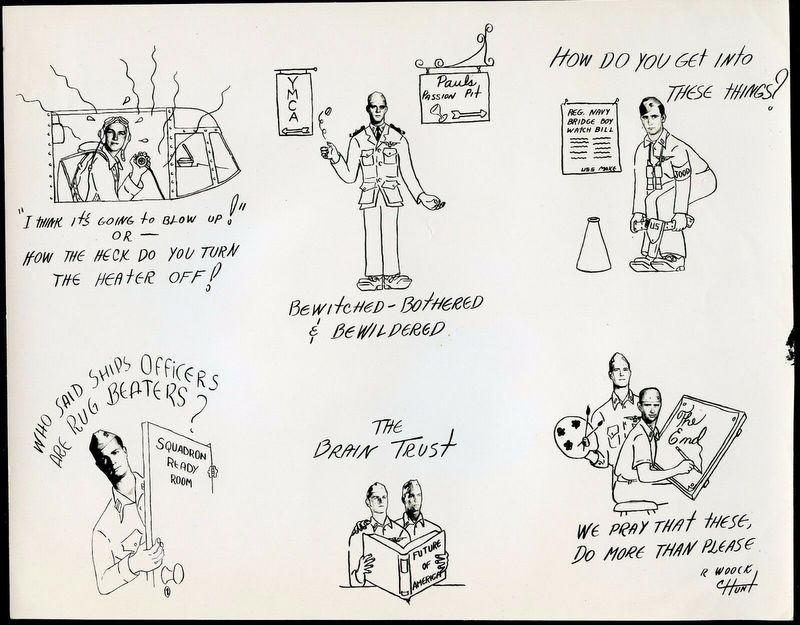 "I THINK IT'S GOING TO BLOW UP!"
OR —
HOW THE HECK DO YOU TURN
THE HEATER OFF!
YMCA
Pauls
PASSION PIT
BEWITCHED - BOTHERED
& BEWILDERED
HOW DO YOU GET INTO
THESE THINGS?
REG. NAVY
BRIDGE BOY
WATCH BILL
TODD
US
WHO SAID SHIPS OFFICERS
ARE RUG BEATERS?
SQUADRON
READY
ROOM
THE
BRAIN TRUST
FUTURE
OF
AMERICA
The
End
WE PRAY THAT THESE,
DO MORE THAN PLEASE
R WOOCK
C HUNT